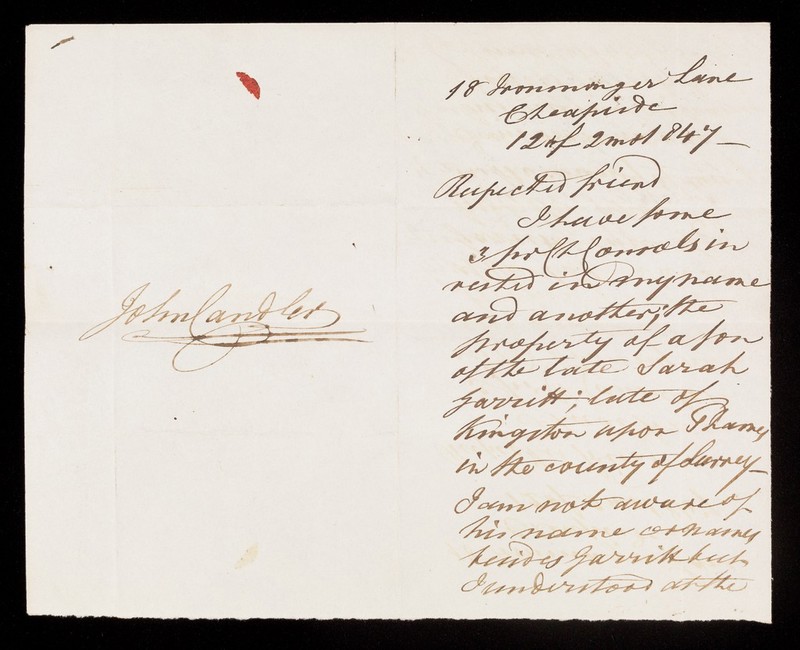 John Candler
18 Ironmonger Lane
Cheapside
12 of 2mo 1847 —
Respected friend
I have some
3 pr Ct Consols in
vested in my name
and another; the
property of a son
of the late Sarah
Garritt; late of
Kingston upon Thames
in the county of Surrey —
I am not aware of
his name or names
besides Garritt but
I understood at the